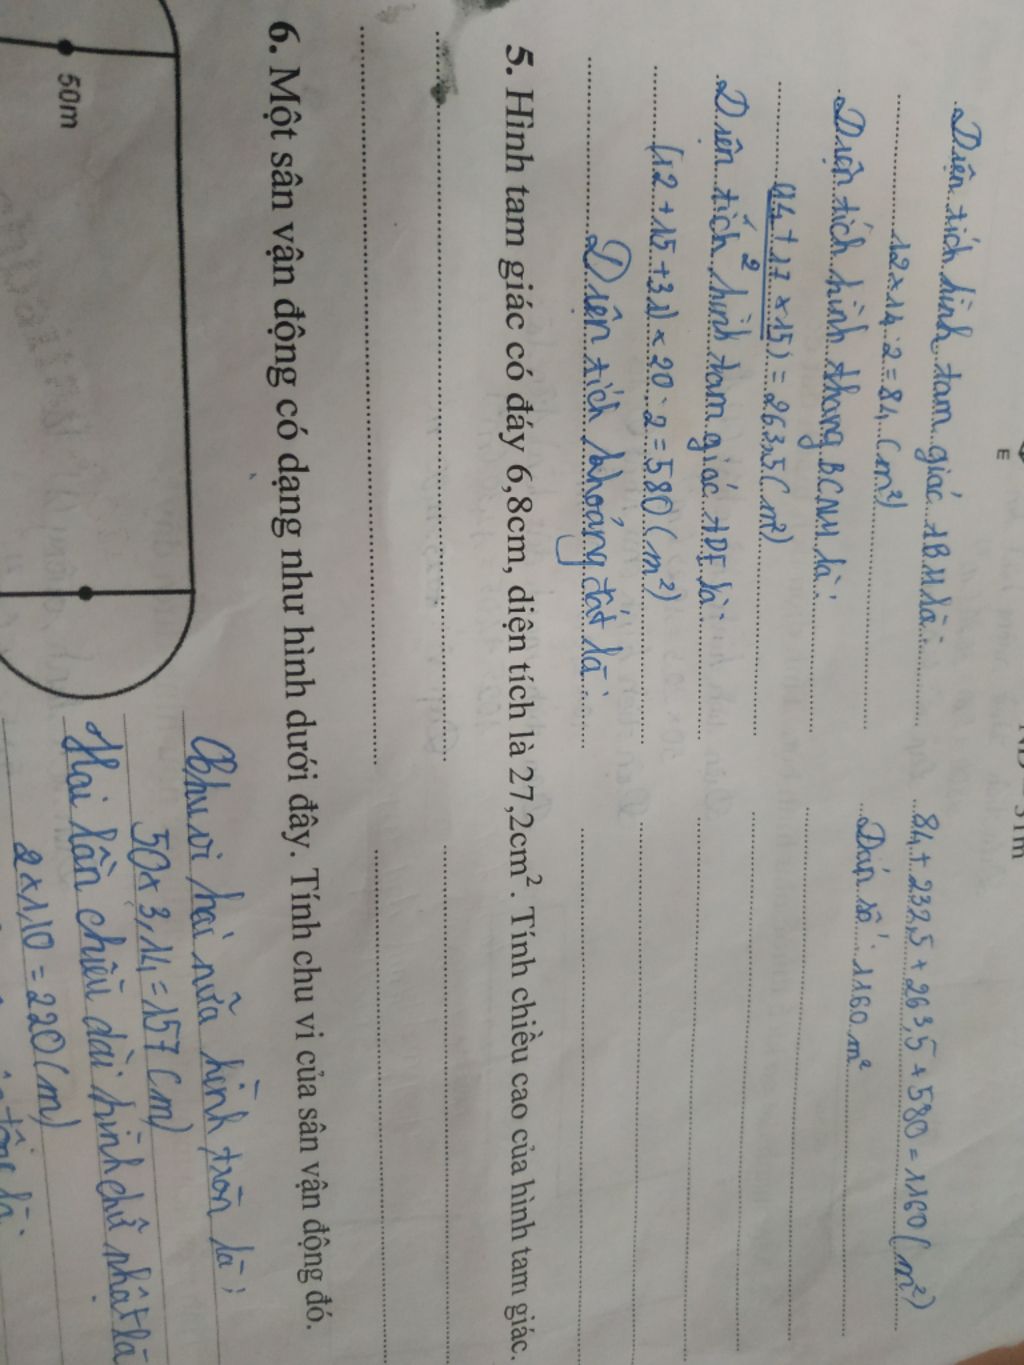 E
31m
Diện tích hình tam giác ABM là:
12 x 14 : 2 = 84 (m²)
Diện tích hình thang BCNM là:
(14 + 17 x 15) = 263,5 (m²)
2
Diện tích hình tam giác ADE là:
(12 + 15 + 31) x 20 : 2 = 580 (m²)
Diện tích khoảng đất là:
84 + 232,5 + 263,5 + 580 = 1160 (m²)
Đáp số: 1160 m²
5. Hình tam giác có đáy 6,8cm, diện tích là 27,2cm². Tính chiều cao của hình tam giác.
6. Một sân vận động có dạng như hình dưới đây. Tính chu vi của sân vận động đó.
50m
Chu vi hai nữa hình tròn là:
50 x 3,14 = 157 (m)
Hai lần chiều dài hình chữ nhật là
2 x 110 = 220 (m)